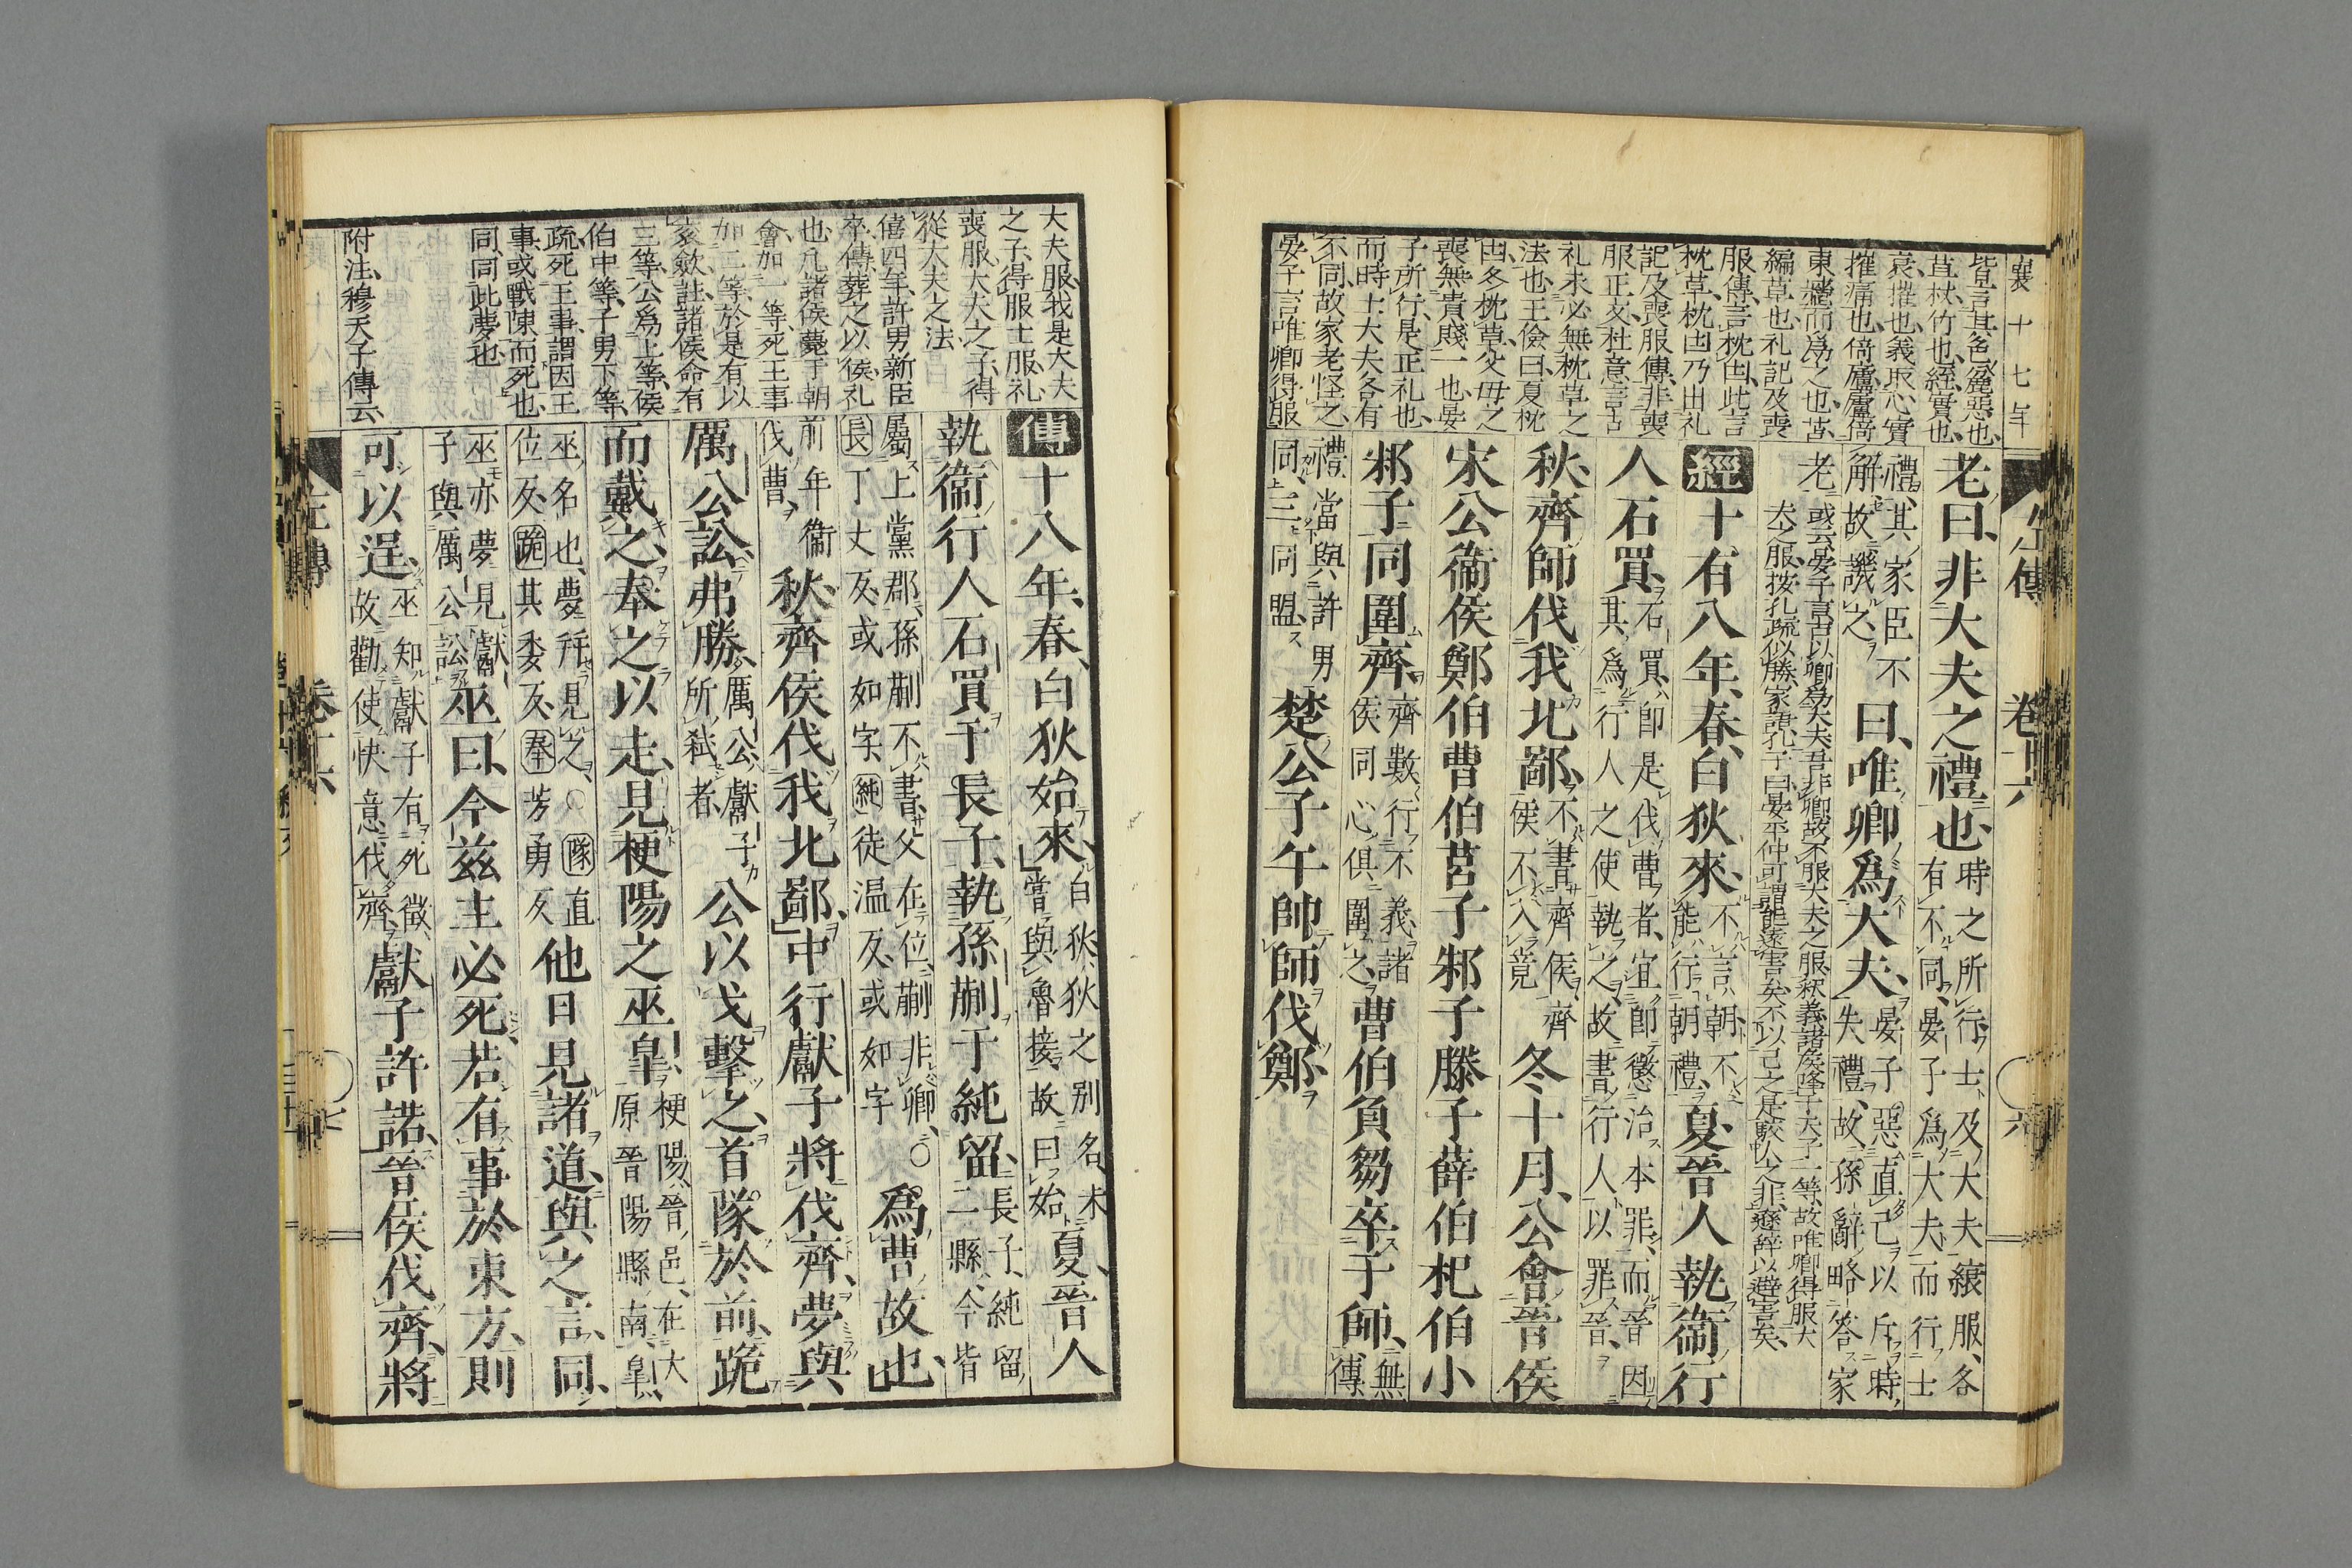 襄十七年
左傳 卷十六 六
皆言其色麤惡也
苴杖竹也絰實也
衰摧也義取心實
摧痛也倚廬廬倚
東墻而爲之也苫
編草也礼記及喪
服傳言枕凷此言
枕草枕凷乃出礼
記及喪服傳非喪
服正文杜意言古
礼未必無枕草之
法也王儉曰夏枕
凷冬枕草父毋之
喪無貴賤一也晏
子所行是正礼也
而時士大夫各有
不同故家老怪之
晏子言唯卿得服
老曰非大夫之禮也
時之所行士及大夫縗服各
有不同晏子爲大夫而行士
禮其家臣不
解故譏之
曰唯卿爲大夫
晏子惡直己以斥時
失禮故孫辭略答家
老
或云晏子言古以卿爲大夫吾非卿故不服大夫之服釈義諸侯降于天子一等故唯卿得服大
夫之服按孔疏似勝家語孔子曰晏平仲可謂能遠害矣不以己之是駁人之非遜辭以避害矣
經十有八年春白狄來
不言朝不
能行朝禮
夏晉人執衞行
人石買
石買即是伐曹者宜即懲治本罪而晉因
其爲行人之使執之故書行人以罪晉
秋齊師伐我北鄙
不書齊侯齊
侯不入竟
冬十月公會晉侯
宋公衞侯鄭伯曹伯莒子邾子滕子薛伯杞伯小
邾子同圍齊
齊數行不義諸
侯同心俱圍之
曹伯負芻卒于師
無
傳
禮當與許男
同三同盟
楚公子午帥師伐鄭
大夫服我是大夫
之子得服士服礼
喪服大夫之子得
從大夫之法
僖四年許男新臣
卒傳葬之以侯礼
也凡諸侯薨于朝
會加一等死王事
加二等於是有以
衮斂註諸侯命有
三等公爲上等侯
伯中等子男下等
疏死王事謂因王
事或戰陳而死也
同同此夢也
附注穆天子傳云
傳十八年春白狄始來
白狄狄之别名未
嘗與魯接故曰始
夏晉人
執衞行人石買于長子執孫蒯于純留
長子純留
二縣今皆
屬上黨郡孫蒯不書父在位蒯非卿○
長丁丈反或如字純徒温反或如字
爲曹故也
前年衞
伐曹
秋齊侯伐我北鄙中行獻子將伐齊夢與
厲公訟弗勝
厲公獻子
所弑者
公以戈擊之首隊於前跪
而戴之奉之以走見梗陽之巫臯
梗陽晉邑在大
原晉陽縣南臯
巫名也夢幷見之○隊直
位反跪其委反奉芳勇反
他日見諸道與之言同
巫亦夢見獻
子與厲公訟
巫曰今兹主必死若有事於東方則
可以逞
巫知獻子有死徵
故勸使快意伐齊
獻子許諾晉侯伐齊將
左傳 卷十六 七